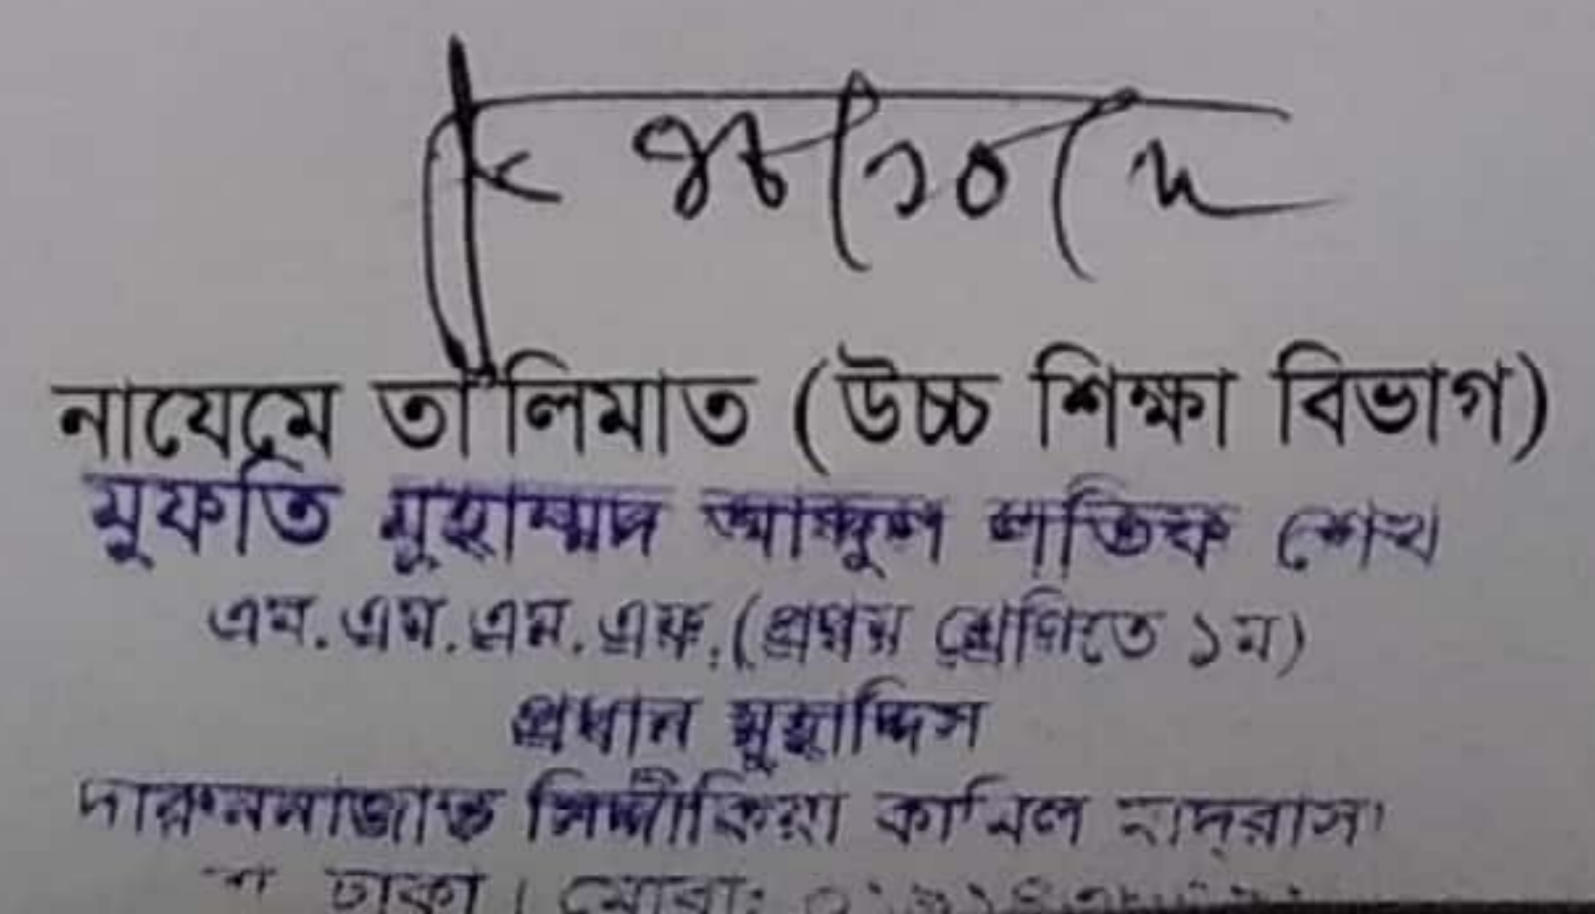 নায়েমে তা'লিমাত (উচ্চ শিক্ষা বিভাগ)
মুফতি মুহাম্মদ আব্দুল লতিফ শেখ
এম.এম.এম.এফ.(প্রথম শ্রেণিতে ১ম)
প্রধান মুহাদ্দিস
দারুননাজাত সিদ্দীকিয়া কামিল মাদ্‌রাসা
ঢাকা।